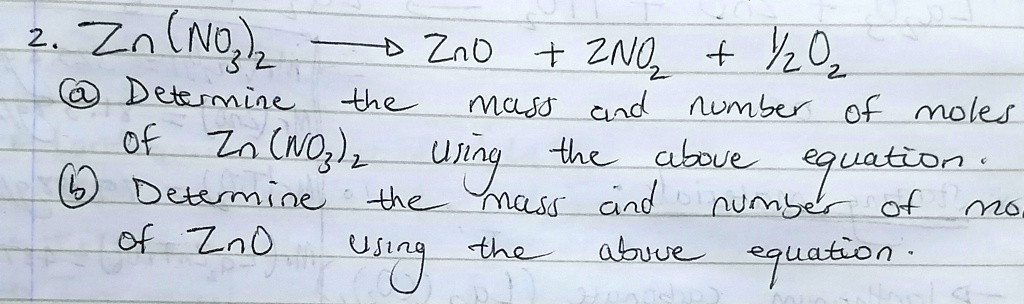 2. Zn(NO₃)₂ → ZnO + 2NO₂ + ½O₂
ⓐ Determine the mass and number of moles
of Zn(NO₃)₂ using the above equation.
ⓑ Determine the mass and number of mo
of ZnO using the above equation.